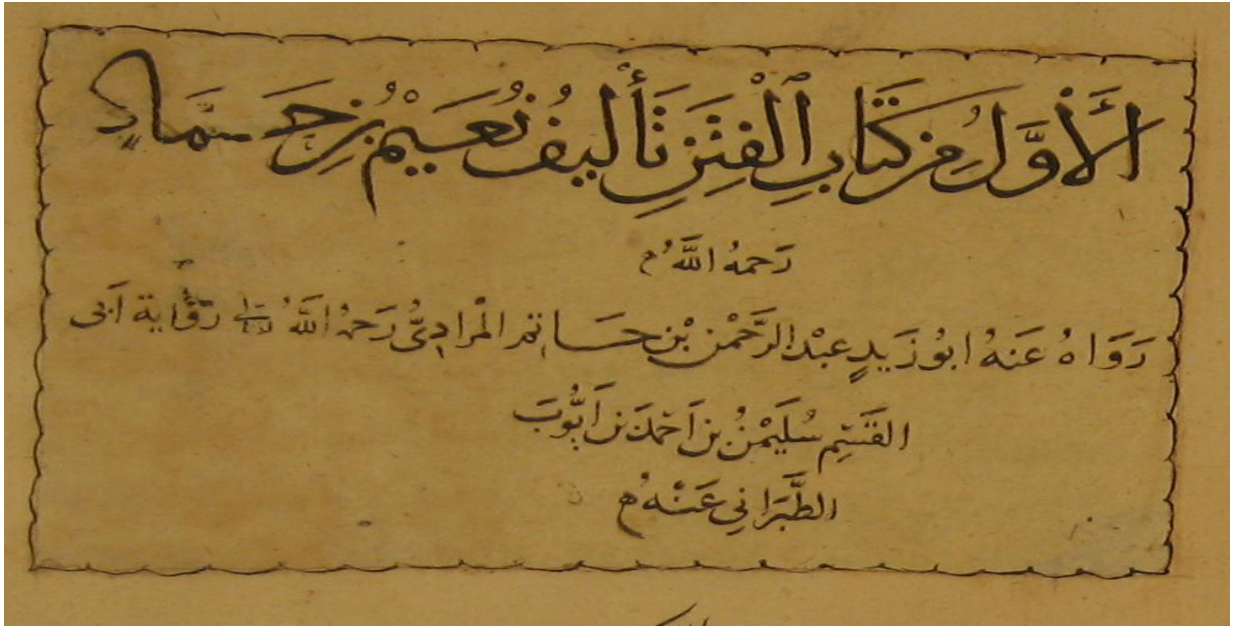 الأَوَّلُ مِن كتَابِ ٱلْفِتَنِ تَأْلِيفُ نُعَيْمُ بْنِ حَمَّادٍ
رَحمهُ اللَّهُ
رَوَاهُ عَنهُ ابُو زَيدٍ عبْد الرَّحْمن بْن حَاتم المْرادِىُّ رَحمهُ اللَّهُ رِوَاية اَبى
القَسِم سُلَيمْنُ بن اَحمَدَ بن اَيُّوبَ
الطَّبَرَانى عَنْهُ